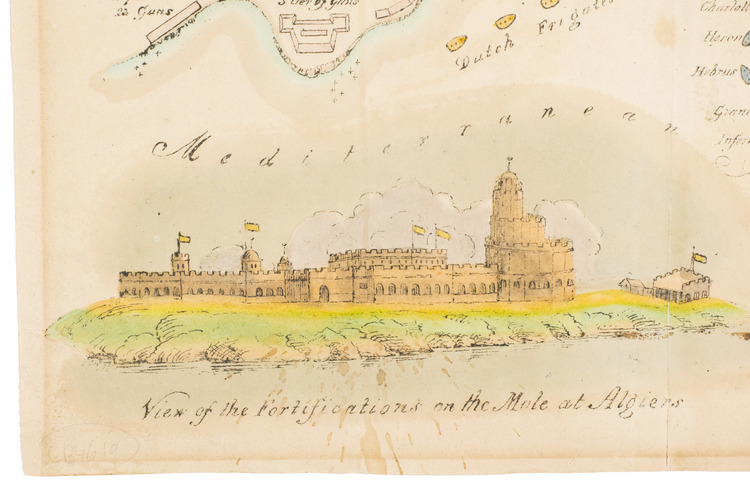 22 Guns
3 tier of Guns
Dutch Frigates
Charlott
Heron
Hebrus
Gran
Infer
Mediterranean
View of the Fortifications on the Mole at Algiers